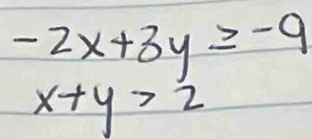 -2x+3y ≥ -9
x+y > 2